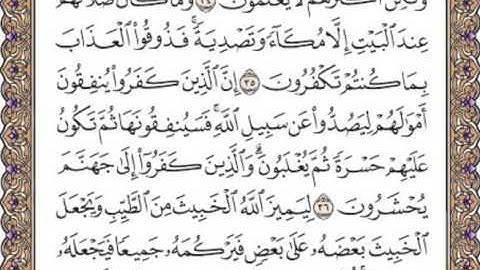 وَلَٰكِنَّ أَكْثَرَهُمْ لَا يَعْلَمُونَ ۝٣٤ وَمَا كَانَ صَلَاتُهُمْ
عِندَ ٱلْبَيْتِ إِلَّا مُكَآءً وَتَصْدِيَةً ۚ فَذُوقُوا۟ ٱلْعَذَابَ
بِمَا كُنتُمْ تَكْفُرُونَ ۝٣٥ إِنَّ ٱلَّذِينَ كَفَرُوا۟ يُنفِقُونَ
أَمْوَٰلَهُمْ لِيَصُدُّوا۟ عَن سَبِيلِ ٱللَّهِ ۚ فَسَيُنفِقُونَهَا ثُمَّ تَكُونُ
عَلَيْهِمْ حَسْرَةً ثُمَّ يُغْلَبُونَ ۗ وَٱلَّذِينَ كَفَرُوٓا۟ إِلَىٰ جَهَنَّمَ
يُحْشَرُونَ ۝٣٦ لِيَمِيزَ ٱللَّهُ ٱلْخَبِيثَ مِنَ ٱلطَّيِّبِ وَيَجْعَلَ
ٱلْخَبِيثَ بَعْضَهُۥ عَلَىٰ بَعْضٍ فَيَرْكُمَهُۥ جَمِيعًا فَيَجْعَلَهُۥ